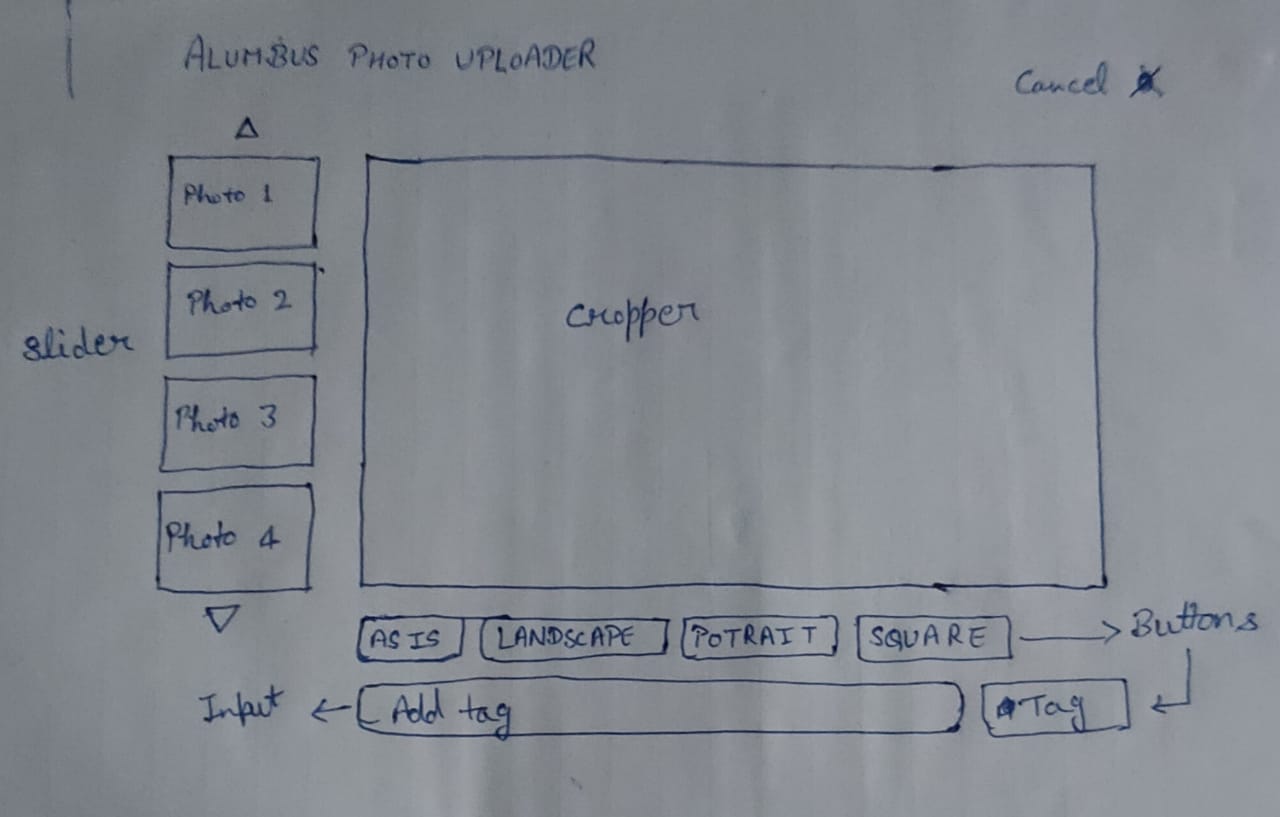 ALUMBUS PHOTO UPLOADER
Cancel X
Photo 1
Photo 2
slider
Photo 3
Photo 4
cropper
AS IS
LANDSCAPE
POTRAIT
SQUARE
Buttons
Input
Add tag
Tag